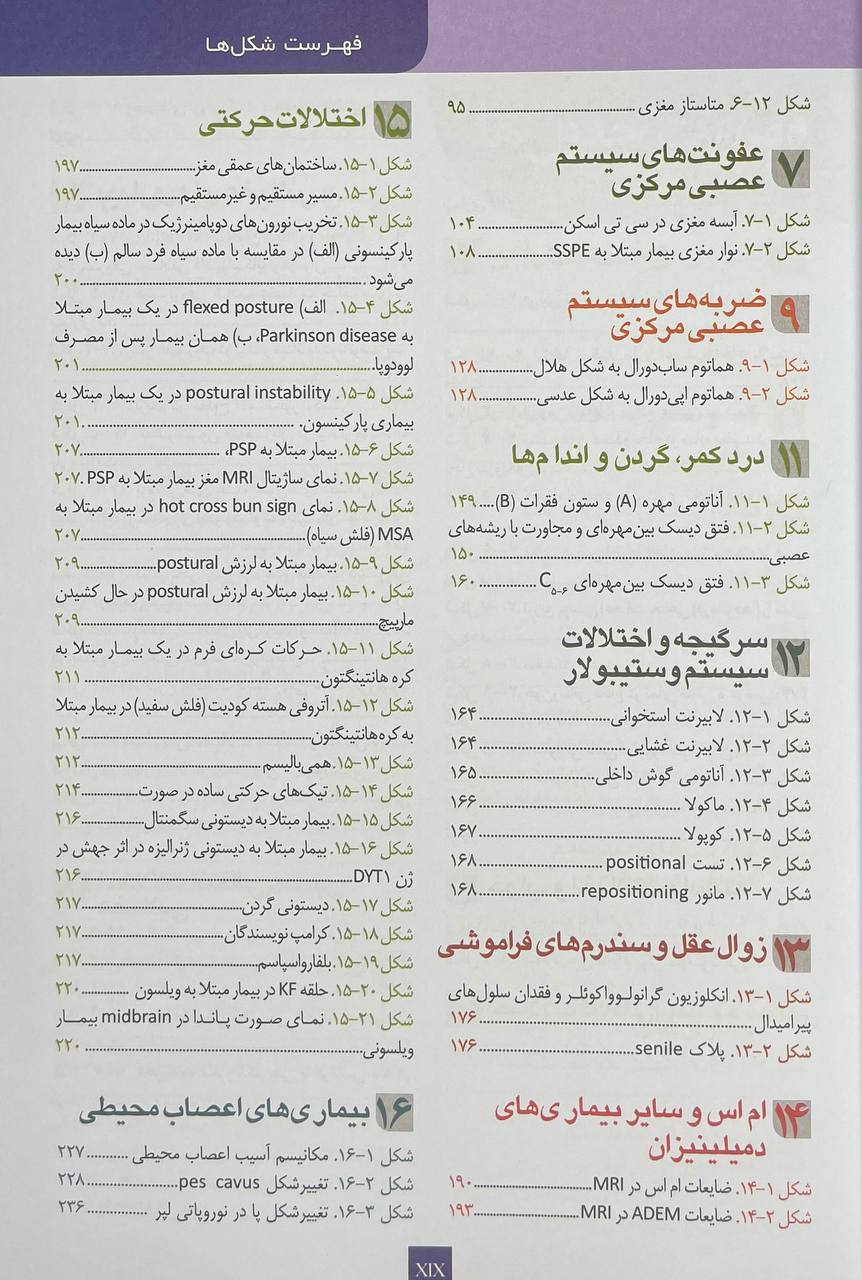 فهرست شکل‌ها
شکل ۱۲-۶. متاستاز مغزی ........ ۹۵
۷ عفونت‌های سیستم
عصبی مرکزی
شکل ۱-۷. آبسه مغزی در سی تی اسکن ........ ۱۰۴
شکل ۲-۷. نوار مغزی بیمار مبتلا به SSPE ........ ۱۰۸
۹ ضربه‌های سیستم
عصبی مرکزی
شکل ۱-۹. هماتوم ساب‌دورال به شکل هلال ........ ۱۲۸
شکل ۲-۹. هماتوم اپی‌دورال به شکل عدسی ........ ۱۲۸
۱۱ درد کمر، گردن و اندا م‌ها
شکل ۱-۱۱. آناتومی مهره (A) و ستون فقرات (B) .... ۱۴۹
شکل ۲-۱۱. فتق دیسک بین‌مهره‌ای و مجاورت با ریشه‌های
عصبی ........ ۱۵۰
شکل ۳-۱۱. فتق دیسک بین‌مهره‌ای C۵-۶ ........ ۱۶۰
۱۲ سرگیجه و اختلالات
سیستم وستیبولار
شکل ۱-۱۲. لابیرنت استخوانی ........ ۱۶۴
شکل ۲-۱۲. لابیرنت غشایی ........ ۱۶۴
شکل ۳-۱۲. آناتومی گوش داخلی ........ ۱۶۵
شکل ۴-۱۲. ماکولا ........ ۱۶۶
شکل ۵-۱۲. کوپولا ........ ۱۶۷
شکل ۶-۱۲. تست positional ........ ۱۶۸
شکل ۷-۱۲. مانور repositioning ........ ۱۶۸
۱۳ زوال عقل و سندرم‌های فراموشی
شکل ۱-۱۳. انکلوزیون گرانولوواکوئلر و فقدان سلول‌های
پیرامیدال ........ ۱۷۶
شکل ۲-۱۳. پلاک senile ........ ۱۷۶
۱۴ ام اس و سایر بیمار ی‌های
دمیلینیزان
شکل ۱-۱۴. ضایعات ام اس در MRI ........ ۱۹۰
شکل ۲-۱۴. ضایعات ADEM در MRI ........ ۱۹۳
۱۵ اختلالات حرکتی
شکل ۱-۱۵. ساختمان‌های عمقی مغز ........ ۱۹۷
شکل ۲-۱۵. مسیر مستقیم و غیرمستقیم ........ ۱۹۷
شکل ۳-۱۵. تخریب نورون‌های دوپامینرژیک در ماده سیاه بیمار
پارکینسونی (الف) در مقایسه با ماده سیاه فرد سالم (ب) دیده
می‌شود ........ ۲۰۰
شکل ۴-۱۵. الف) flexed posture در یک بیمار مبتلا
به Parkinson disease، ب) همان بیمار پس از مصرف
لوودوپا ........ ۲۰۱
شکل ۵-۱۵. postural instability در یک بیمار مبتلا به
بیماری پارکینسون. ........ ۲۰۱
شکل ۶-۱۵. بیمار مبتلا به PSP، ........ ۲۰۷
شکل ۷-۱۵. نمای ساژیتال MRI مغز بیمار مبتلا به PSP . ۲۰۷
شکل ۸-۱۵. نمای hot cross bun sign در بیمار مبتلا به
MSA (فلش سیاه) ........ ۲۰۷
شکل ۹-۱۵. بیمار مبتلا به لرزش postural ........ ۲۰۹
شکل ۱۰-۱۵. بیمار مبتلا به لرزش postural در حال کشیدن
مارپیچ ........ ۲۰۹
شکل ۱۱-۱۵. حرکات کره‌ای فرم در یک بیمار مبتلا به
کره هانتینگتون ........ ۲۱۱
شکل ۱۲-۱۵. آتروفی هسته کودیت (فلش سفید) در بیمار مبتلا
به کره‌هانتینگتون ........ ۲۱۲
شکل ۱۳-۱۵. همی‌بالیسم ........ ۲۱۲
شکل ۱۴-۱۵. تیک‌های حرکتی ساده در صورت ........ ۲۱۴
شکل ۱۵-۱۵. بیمار مبتلا به دیستونی سگمنتال ........ ۲۱۶
شکل ۱۶-۱۵. بیمار مبتلا به دیستونی ژنرالیزه در اثر جهش در
ژن DYT۱ ........ ۲۱۶
شکل ۱۷-۱۵. دیستونی گردن ........ ۲۱۷
شکل ۱۸-۱۵. کرامپ نویسندگان ........ ۲۱۷
شکل ۱۹-۱۵. بلفارواسپاسم ........ ۲۱۷
شکل ۲۰-۱۵. حلقه KF در بیمار مبتلا به ویلسون ........ ۲۲۰
شکل ۲۱-۱۵. نمای صورت پاندا در midbrain بیمار
ویلسونی ........ ۲۲۰
۱۶ بیمار ی‌های اعصاب محیطی
شکل ۱-۱۶. مکانیسم آسیب اعصاب محیطی ........ ۲۲۷
شکل ۲-۱۶. تغییرشکل pes cavus ........ ۲۲۸
شکل ۳-۱۶. تغییرشکل پا در نوروپاتی لپر ........ ۲۳۶
XIX